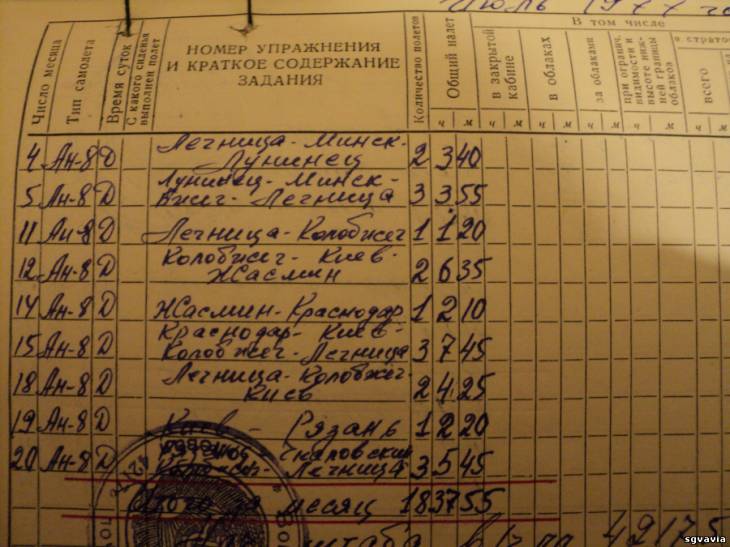 Июль 1977 го
Число месяца
Тип самолета
Время суток
С какого сиденья выполнен полет
НОМЕР УПРАЖНЕНИЯ
И КРАТКОЕ СОДЕРЖАНИЕ
ЗАДАНИЯ
Количество полетов
Общий налет
В том числе
в закрытой кабине
в облаках
за облаками
при огранич. видимости и высоте нижней границы облаков
в страто
всего
ч м ч м ч м ч м ч м ч
Легница-Минск-
4 Ан-8 Д Лунинец 2 3 40
Лунинец-Минск-
5 Ан-8 Д Бжег-Легница 3 3 55
11 Ан-8 Д Легница-Колобжег 1 1 20
Колобжег-Киев-
12 Ан-8 Д Жасмин 2 6 35
14 Ан-8 Д Жасмин-Краснодар 1 2 10
Краснодар-Киев-
15 Ан-8 Д Колобжег-Легница 3 7 45
Легница-Колобжег-
18 Ан-8 Д Киев 2 4 25
19 Ан-8 Д Киев - Рязань 1 2 20
Чкаловский
20 Ан-8 Д Легница 3 5 45
Итого за месяц 18 37 55
штаба в/ч пп 42175
sgvavia